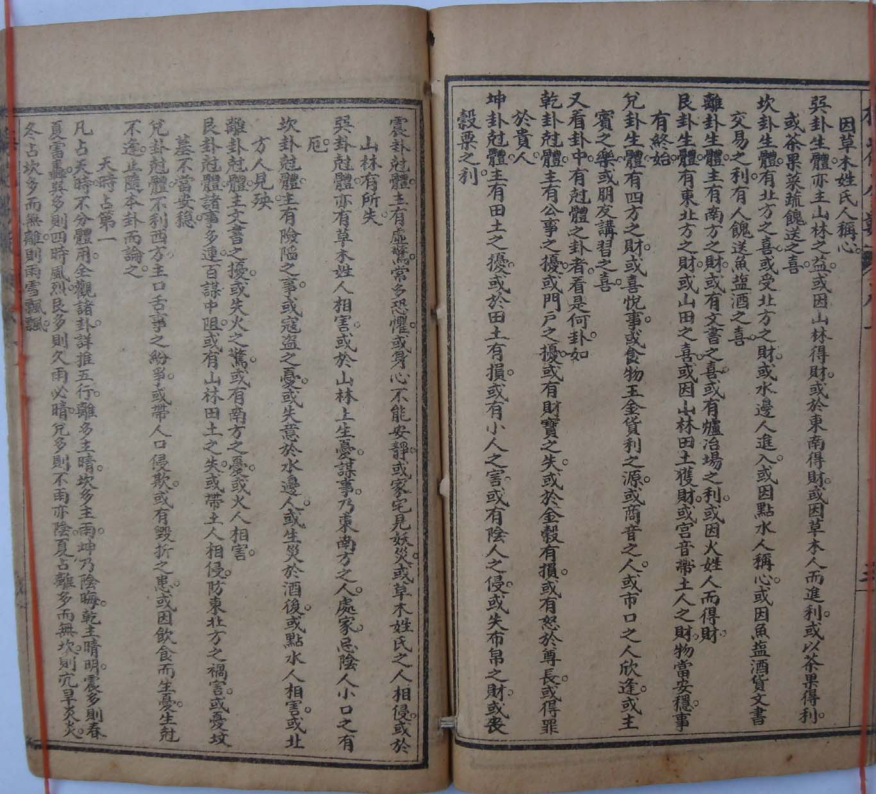 因草木姓氏人稱心
巽卦生體亦主山林之益或因山林得財或於東南得財或因草木人而進利或以茶果得利
或茶果菜蔬餽送之喜
坎卦生體有北方之喜或受北方之財或水邊人進入或因點水人稱心或因魚盐酒貨文書
交易之利有人餽送魚盐酒之喜
離卦生體主有南方之財或有文書之喜或有爐冶場之利或因火姓人而得財
艮卦生體有東北方之財或山田之喜或因山林田土獲財或宮音帶土人之財物當安穩事
有終始
兌卦生體有四方之財或喜悅事或食物玉金貨利之源或商音之人或市口之人欣逢或主
賓之樂或朋友講習之喜
又看卦中有尅體之卦者看是何卦如
乾卦尅體主有公事之擾或門戶之擾或有財寶之失或於金穀有損或有怒於尊長或得罪
於貴人
坤卦尅體主有田土之擾或於田土有損或有小人之害或有陰人之侵或失布帛之財或喪
穀粟之利
震卦尅體主有虛驚常多恐懼或身心不能安靜或家宅見妖災或草木姓氏之人相侵或於
山林有所失
巽卦尅體亦有草木姓人相害或於山林上生憂謀事乃東南方之人處家忌陰人小口之有
厄
坎卦尅體主有險陷之事或寇盜之憂或失意於水邊人或生災於酒後或點水人相害或北
方人見殃
離卦尅體主文書之擾或失火之驚或有南方之憂或火人相害
艮卦尅體諸事多違百謀中阻或有山林田土之失或帶土人相侵防東北方之禍害或憂墳
墓不當安穩
兌卦尅體不利西方主口舌事之紛爭或帶人口侵欺或有毀折之患或因飲食而生憂生尅
不逢止隨本卦而論之
天時占第一
凡占天時不分體用全觀諸卦詳推五行離多主晴坎多主雨坤乃陰晦乾主晴明震多則春
夏雷轟巽多則四時風烈艮多則久雨必晴兌多則不雨亦陰夏占離多而無坎則亢旱炎炎
冬占坎多而無離則雨雪飄飄